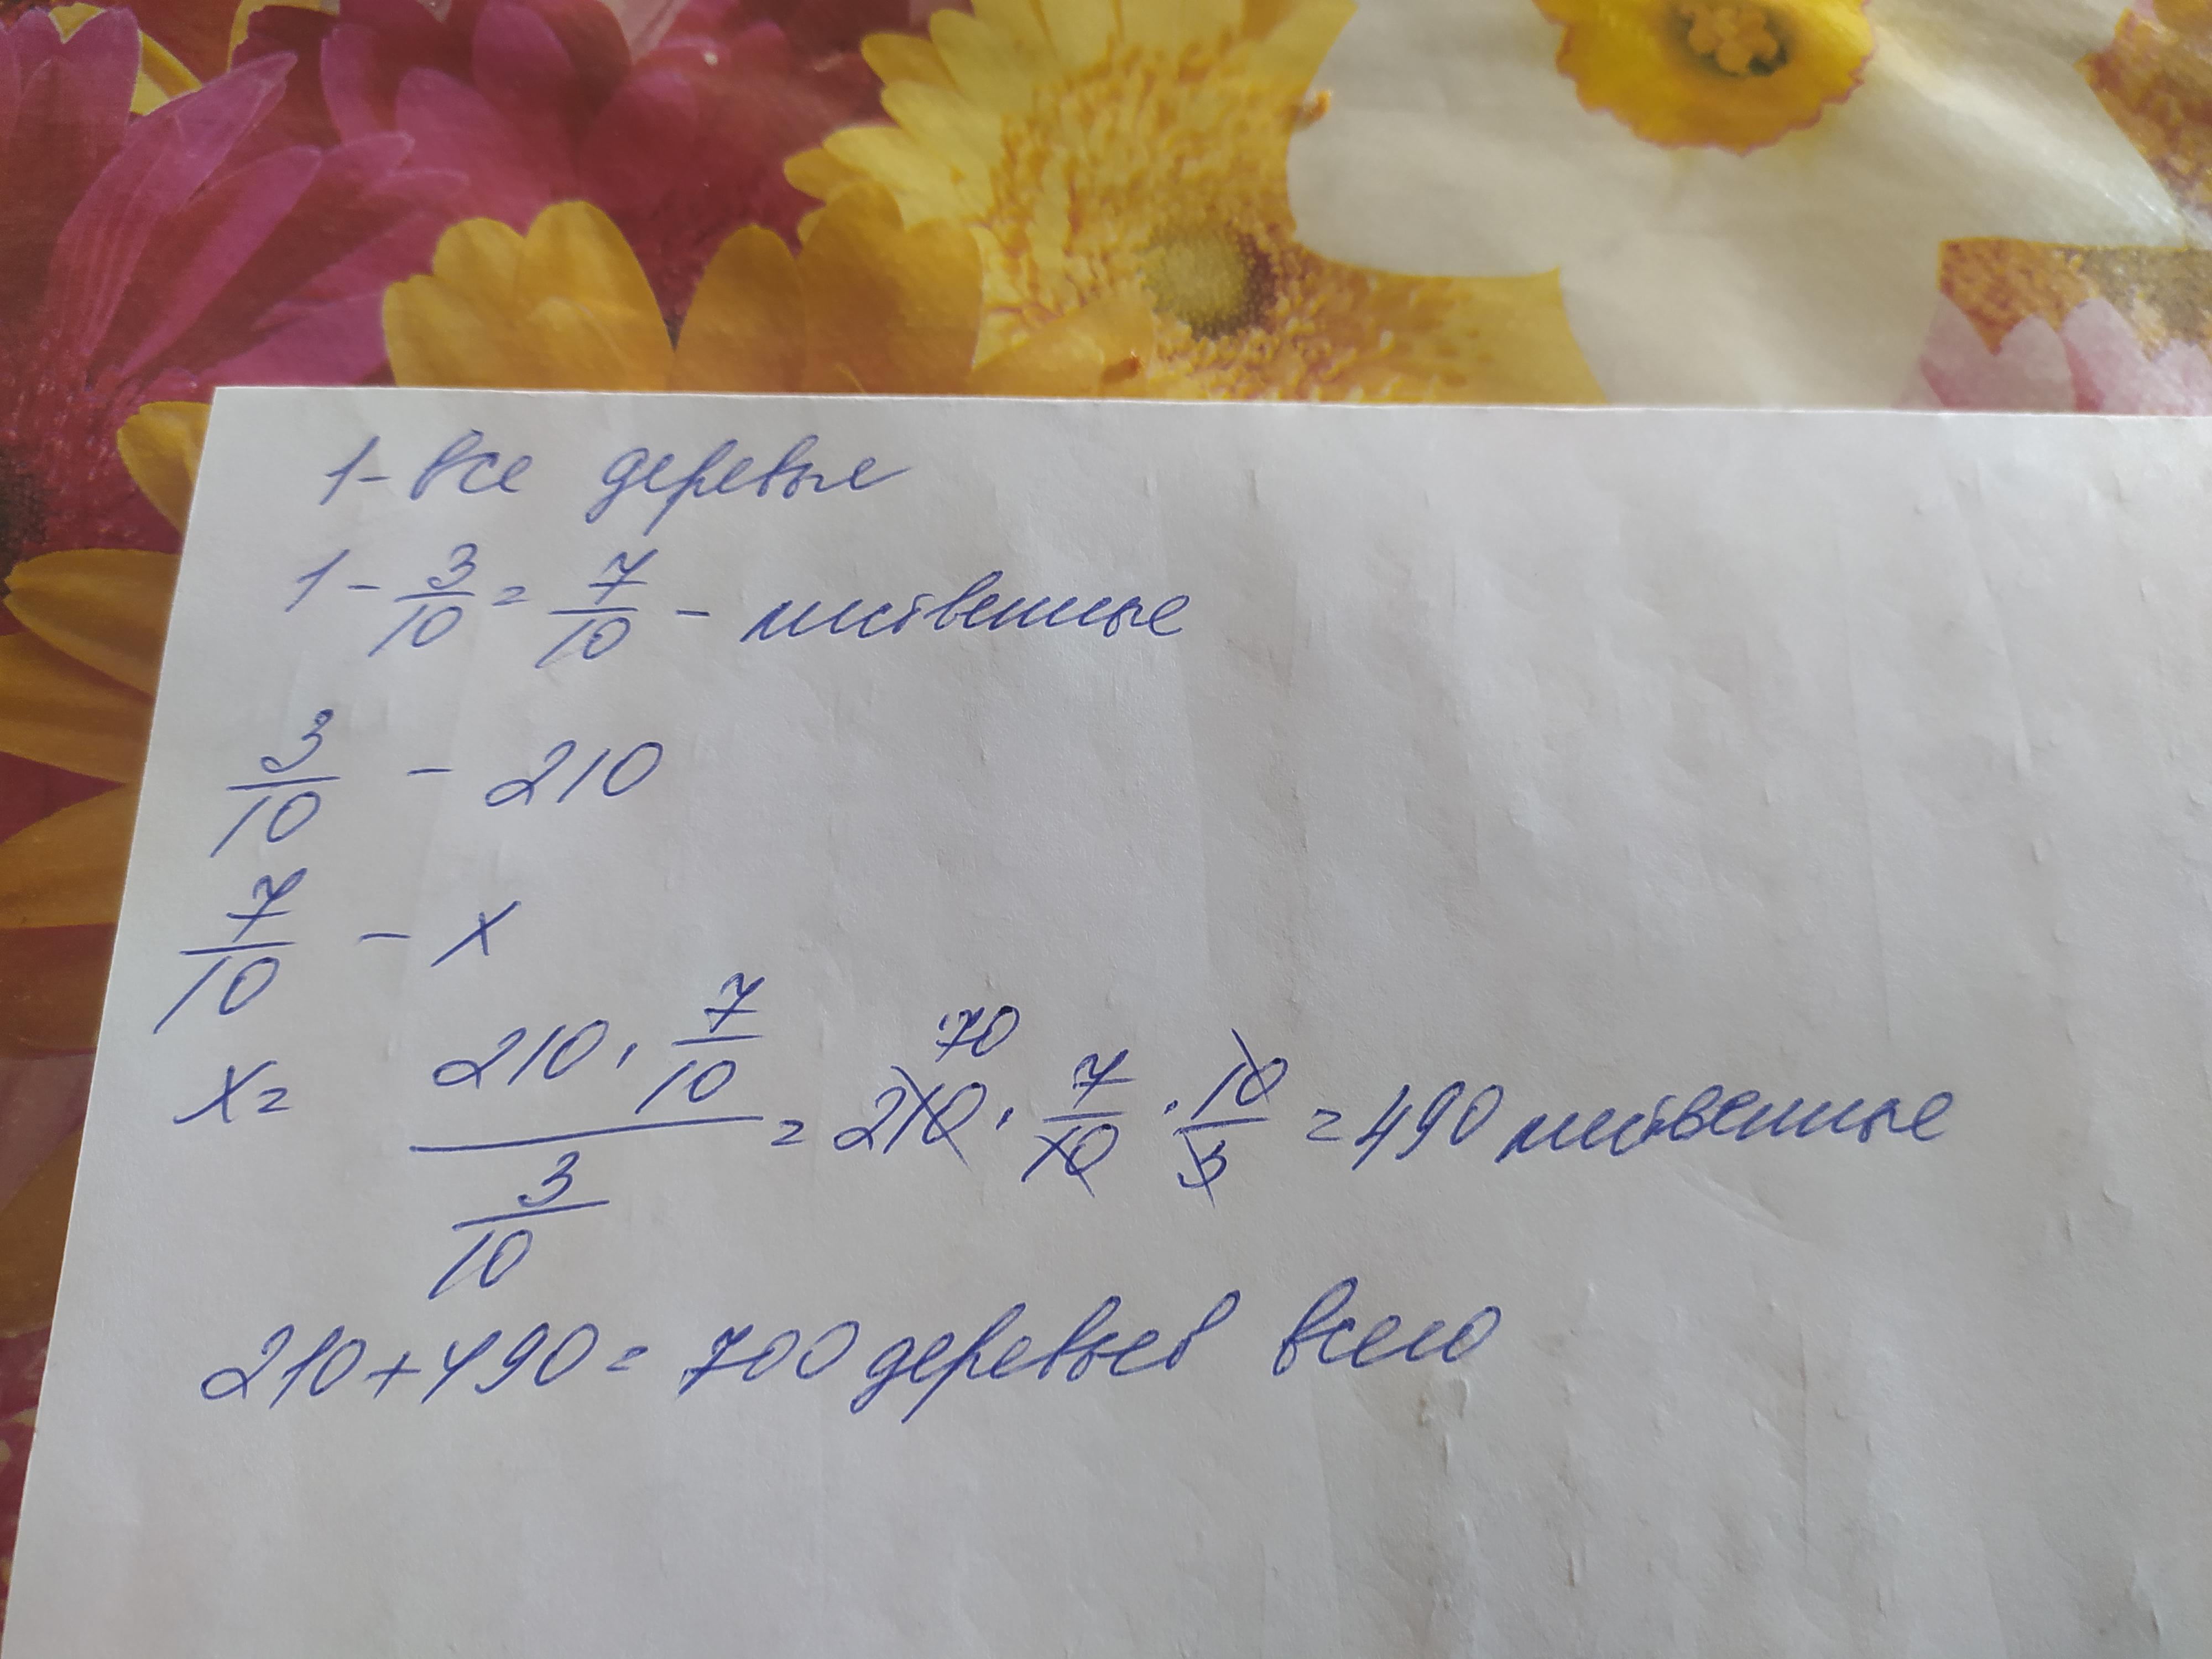 1 - все деревье
1 - 3/10 = 7/10 - лиственные
3/10 - 210
7/10 - x
x = (210 · 7/10) / (3/10) = 210 70 · 7/10 · 10/3 = 490 лиственные
210 + 490 = 700 деревьев всего